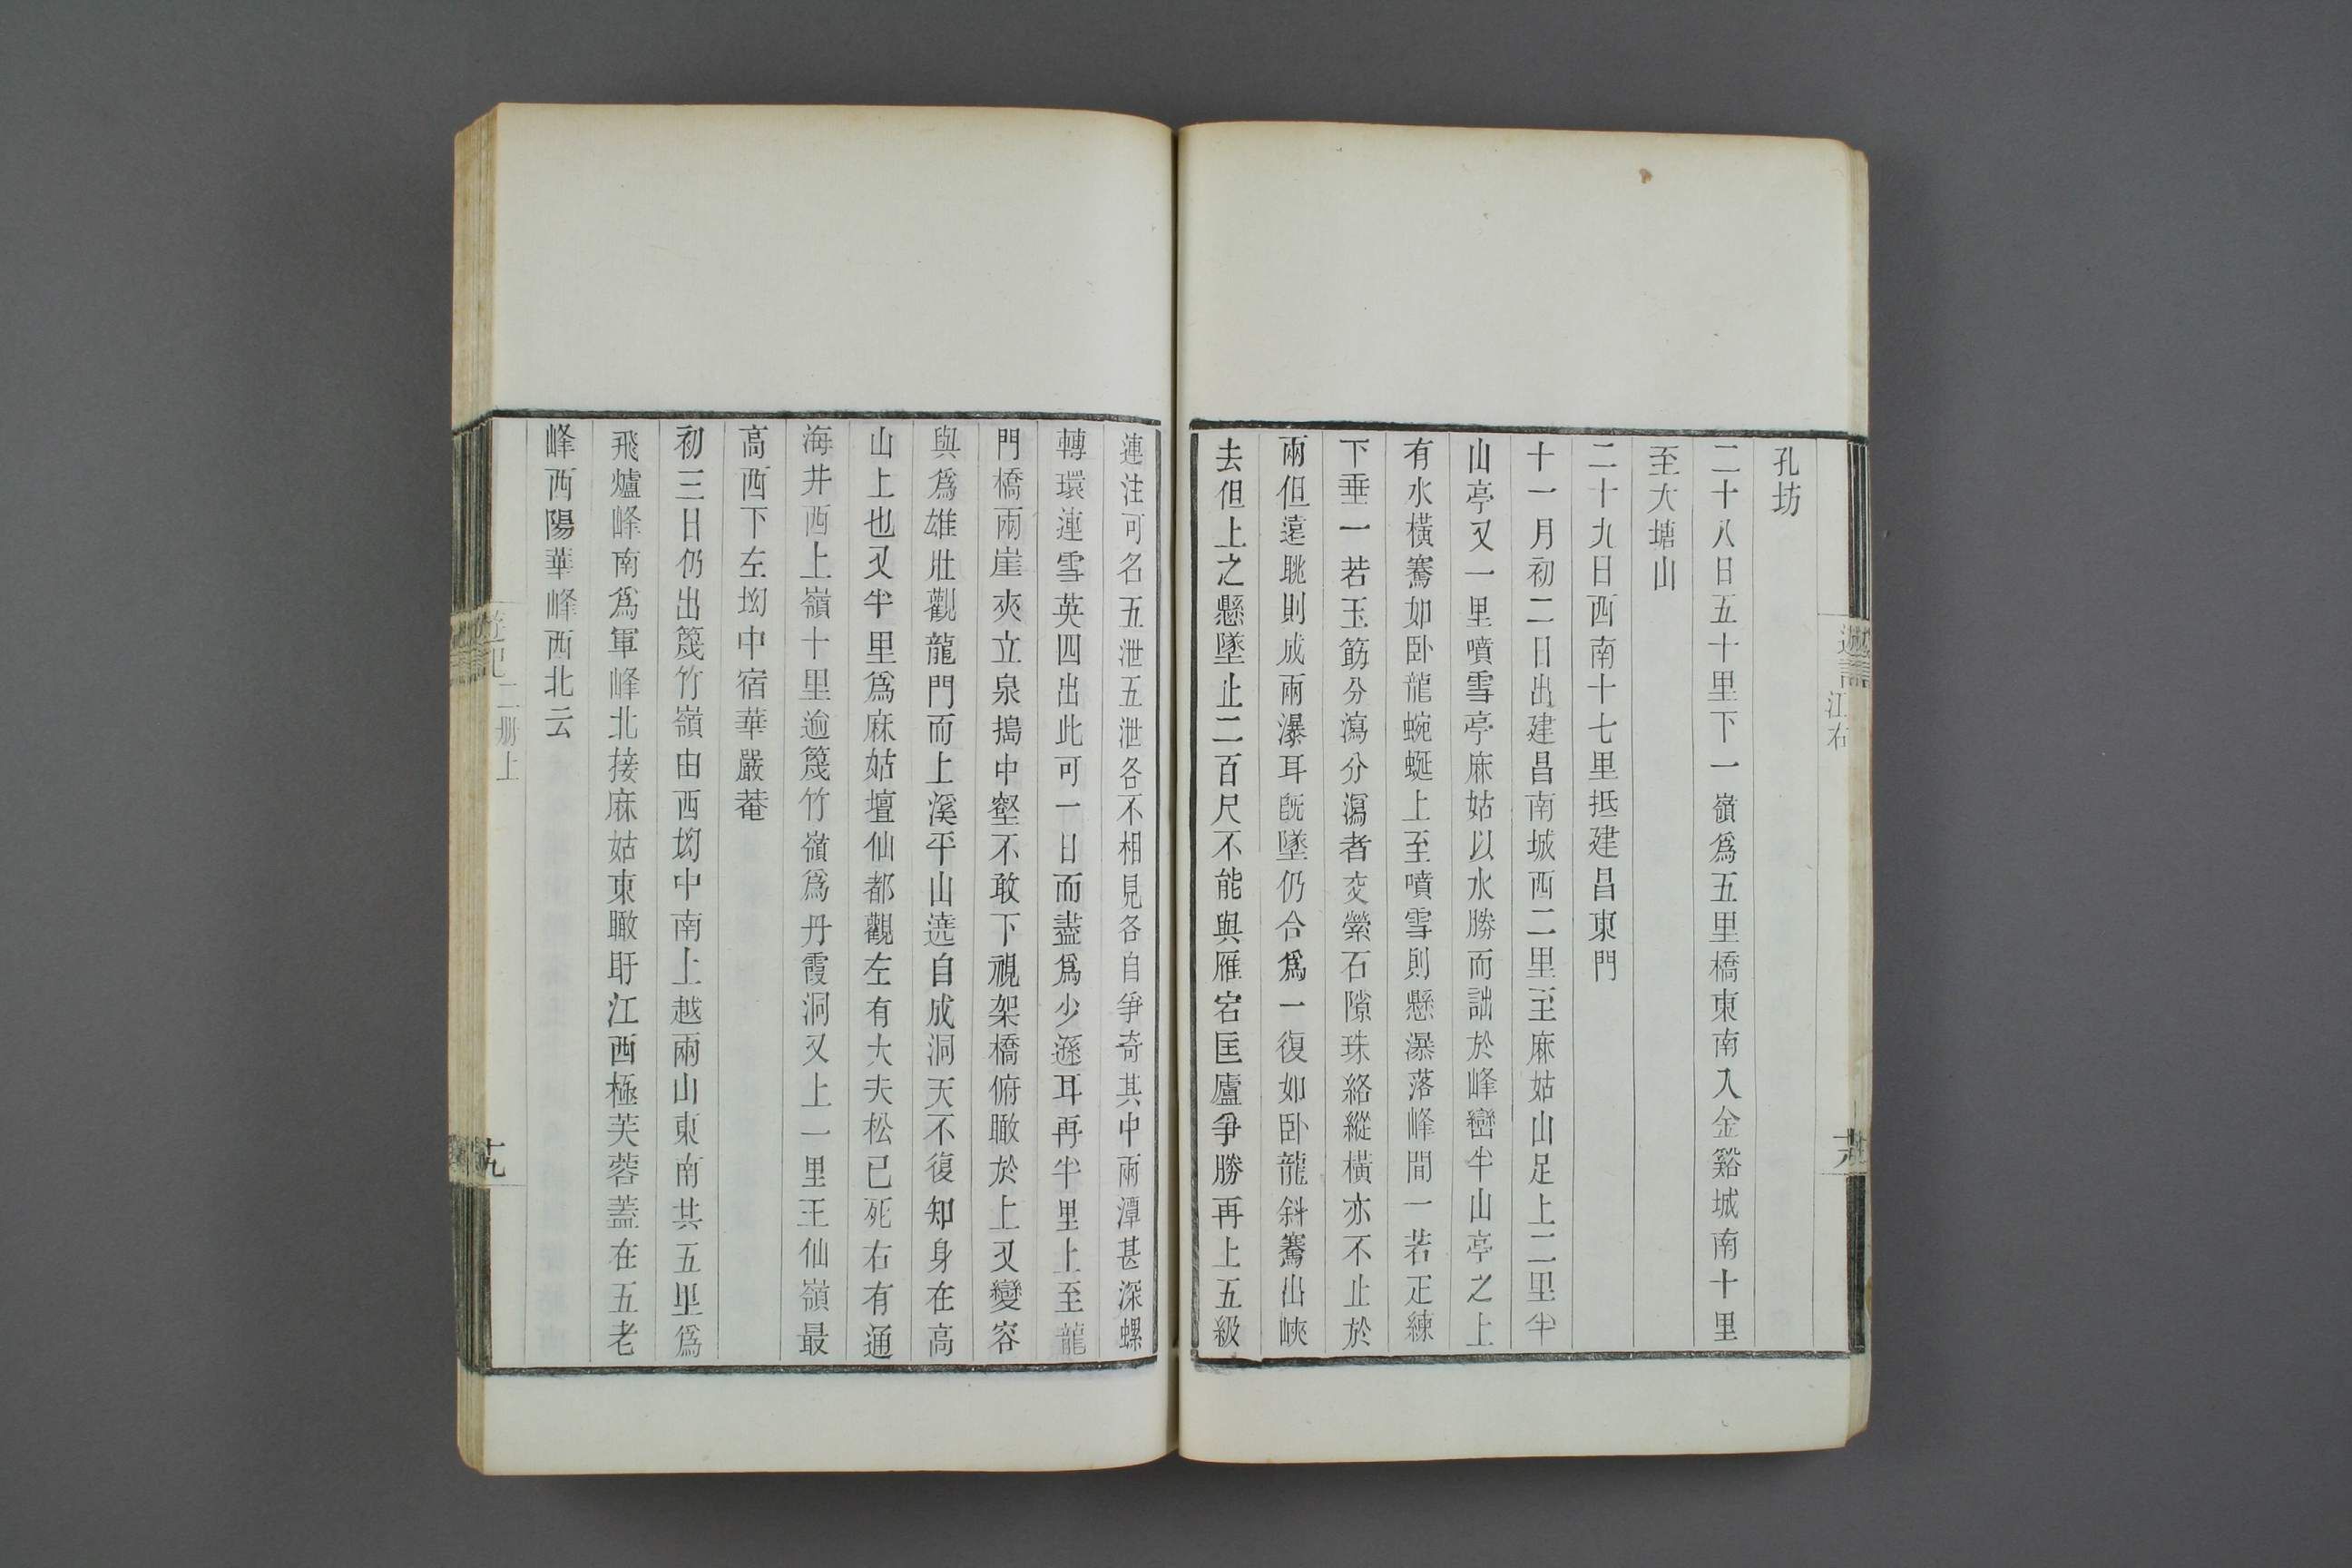 孔坊
二十八日五十里下一嶺爲五里橋東南入金谿城南十里
至大塘山
二十九日西南十七里抵建昌東門
十一月初二日出建昌南城西二里至麻姑山足上二里半
山亭又一里噴雪亭麻姑以水勝而詘於峰巒半山亭之上
有水橫騫如卧龍蜿蜒上至噴雪則懸瀑落峰間一若疋練
下垂一若玉筯分瀉分瀉者交縈石隙珠絡縱橫亦不止於
兩但遠眺則成兩瀑耳既墜仍合爲一復如卧龍斜騫出峽
去但上之懸墜止二百尺不能與雁宕匡廬爭勝再上五級
連注可名五泄五泄各不相見各自爭奇其中兩潭甚深螺
轉環連雪英四出此可一日而盡爲少遜耳再半里上至龍
門橋兩崖夾立泉搗中壑不敢下視架橋俯瞰於上又變容
與爲雄壯觀龍門而上溪平山遶自成洞天不復知身在高
山上也又半里爲麻姑壇仙都觀左有大夫松已死右有通
海井西上嶺十里逾篾竹嶺爲丹霞洞又上一里王仙嶺最
高西下左坳中宿華嚴菴
初三日仍出篾竹嶺由西坳中南上越兩山東南共五里爲
飛爐峰南爲軍峰北接麻姑東瞰盱江西極芙蓉蓋在五老
峰西陽華峰西北云
江右
遊記二册上
十九